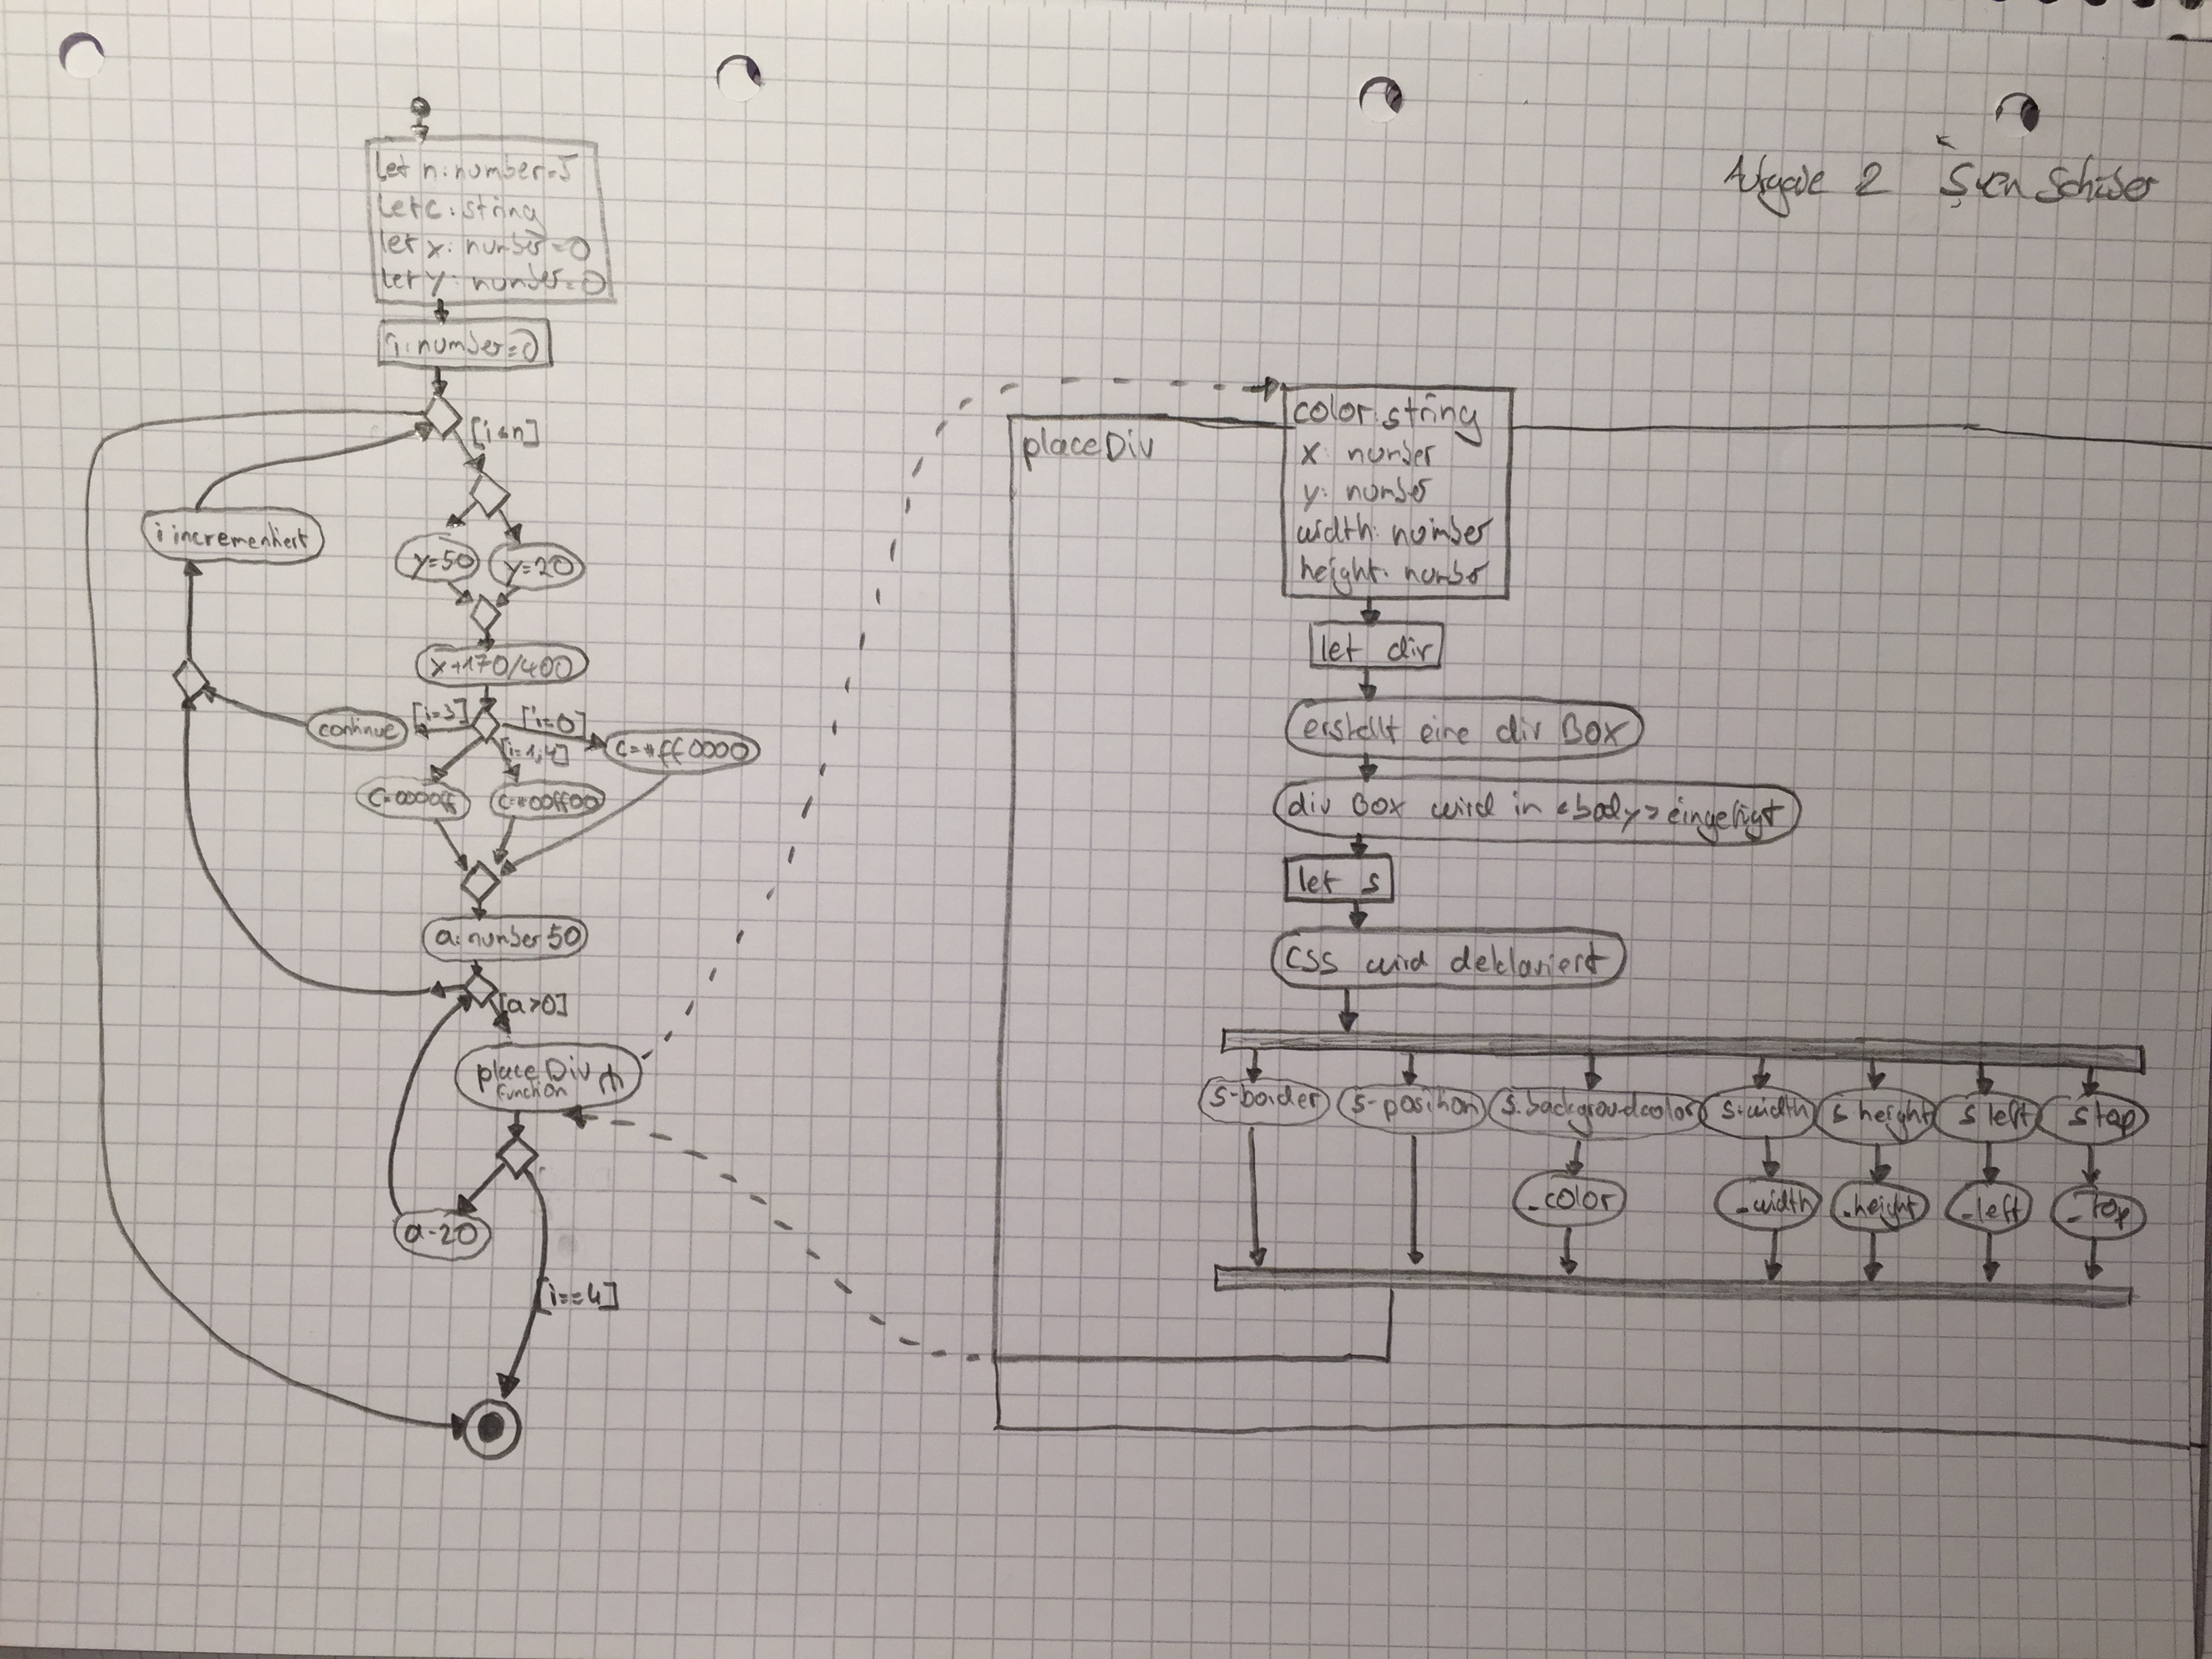 Aufgabe 2 Sven
let n: number=5
let c: string
let x: number=0
let y: number=0
i: number=0
[i<n]
y=50
y=20
x+170/400
i incrementiert
continue
[i=3]
[i=0]
[i=1,4]
c=#ff0000
c=0000ff
c=#00ff00
a: number 50
[a>0]
placeDiv
function
a-20
[i==4]
placeDiv
color: string
x: number
y: number
width: number
height: number
let div
erstellt eine div Box
div Box wird in <body> eingefügt
let s
CSS wird deklariert
s-border
s-position
s.backgroundcolor
s.width
s height
s left
s top
_color
_width
_height
_left
_top